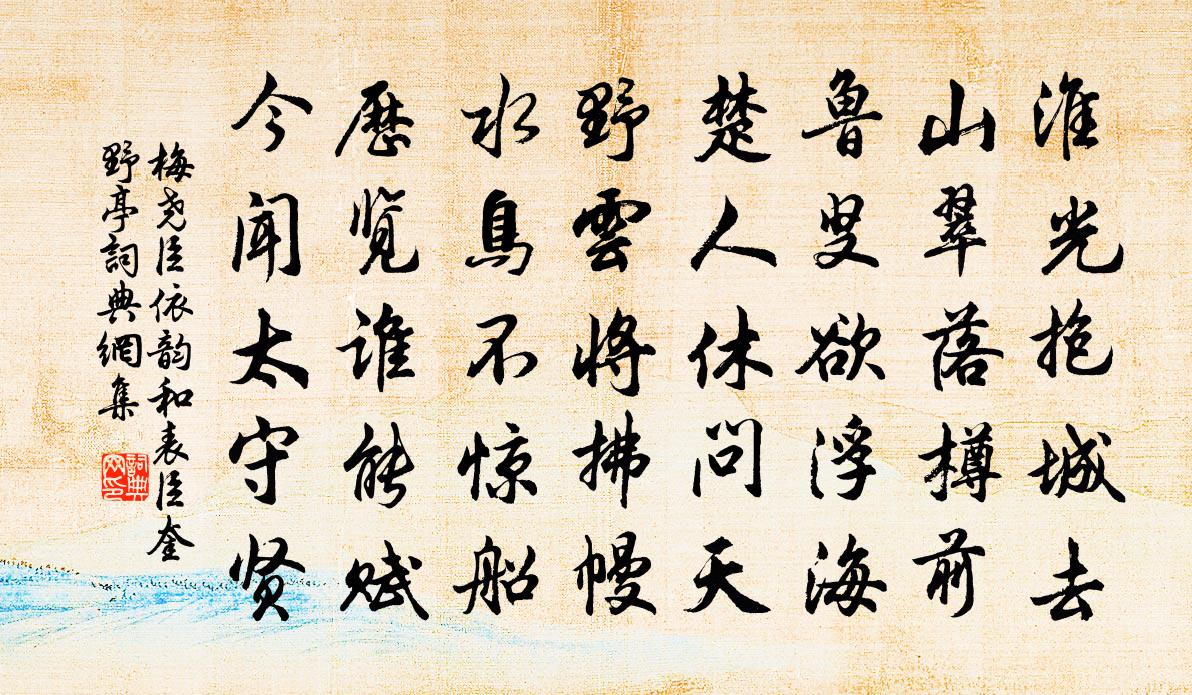 淮光抱城去
山翠落樽前
鲁叟欲浮海
楚人休问天
野雲将拂幔
水鳥不惊船
歷览谁能赋
今闻太守贤
梅尧臣依韵和表臣奎
野亭詞典網集
詞典
网印